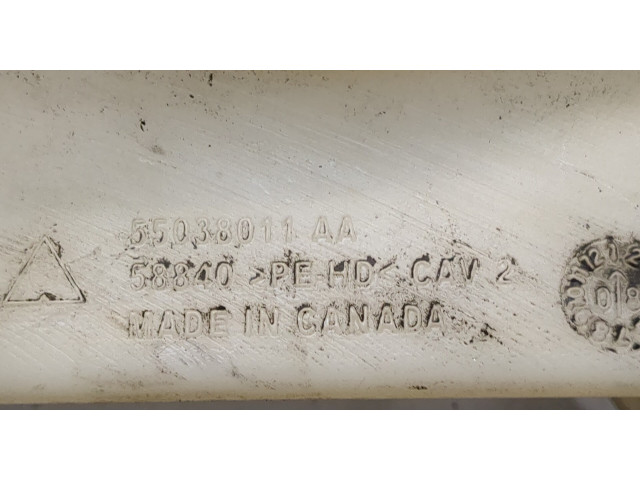 55038011 AA
58840 >PE-HD< CAV 2
MADE IN CANADA